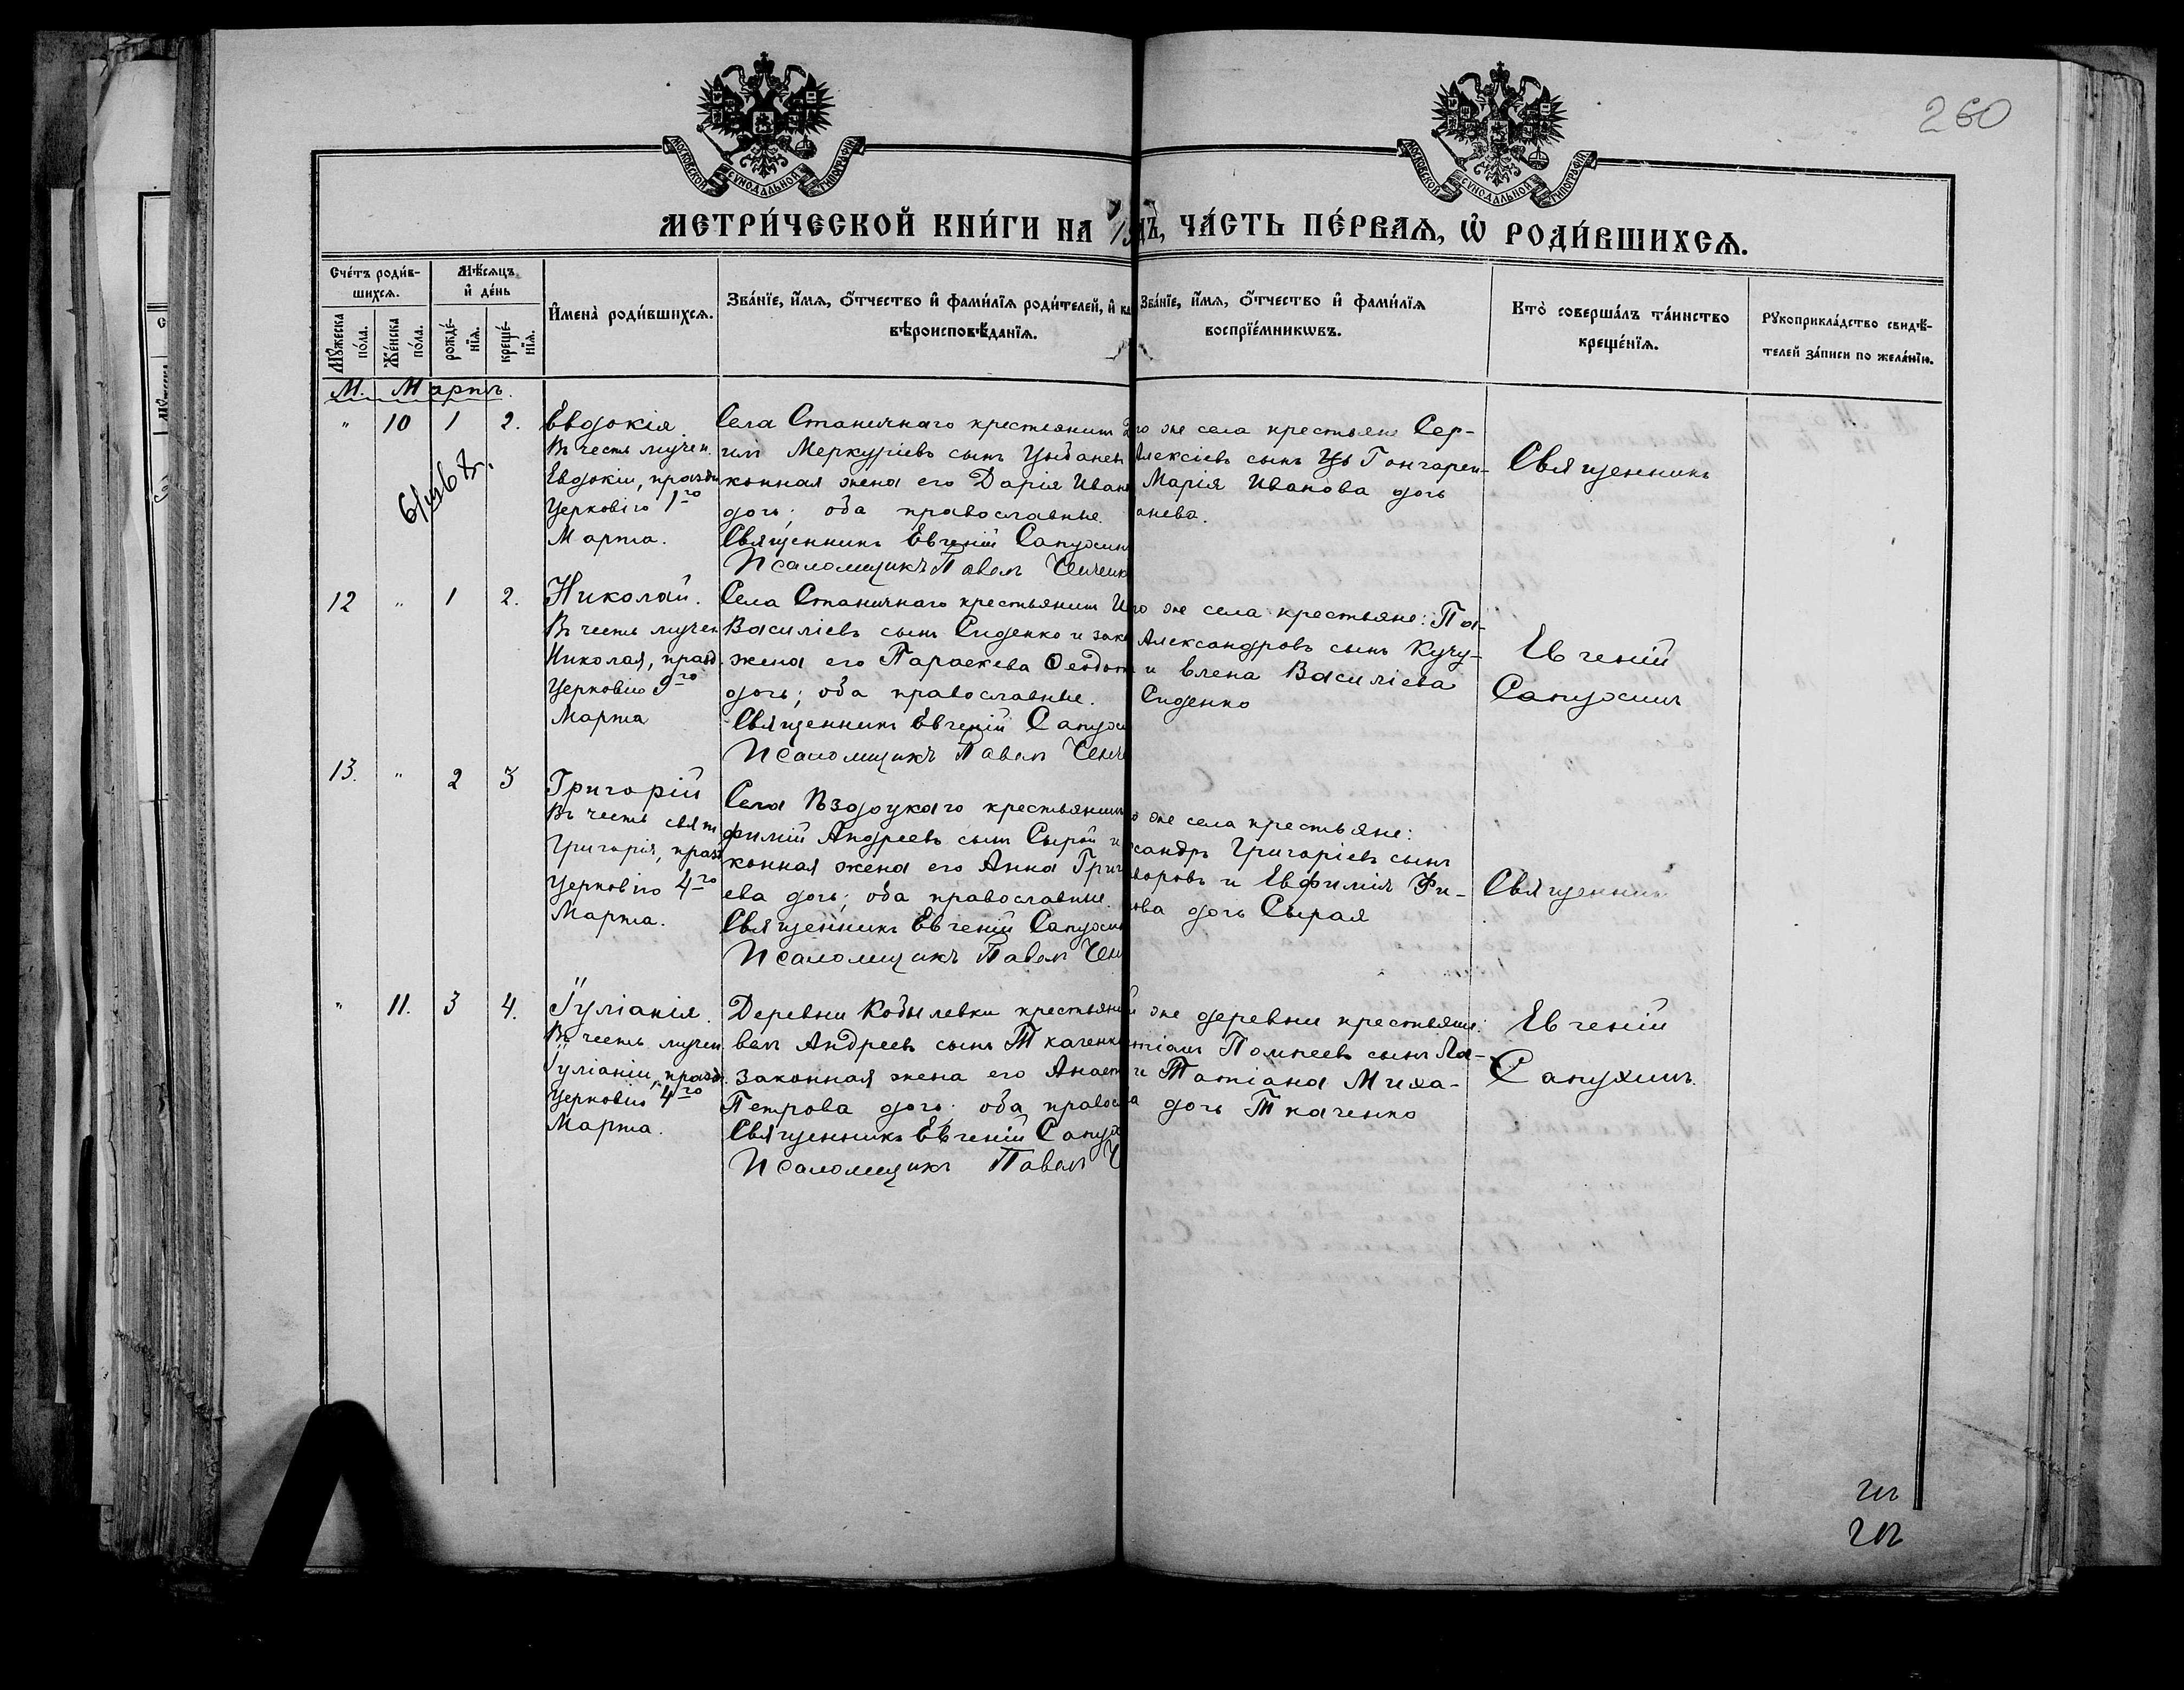 260
МОСКОВСКОЙ СУНОДАЛЬНОЙ ТИПОГРАФІИ
МОСКОВСКОЙ СУНОДАЛЬНОЙ ТИПОГРАФІИ
МЕТРИ́ЧЕСКОЙ КНИ́ГИ НА
ДЪ, ЧА́СТЬ ПЕ́РВАѦ, Ѡ҆ РОДИ́ВШИХСѦ.
Сче́тъ роди́в-
шихсѧ.
Мѣ́сѧцъ
и҆ де́нь
Мꙋ́жеска
по́ла.
Же́нска
по́ла.
рожде́-
нїѧ.
креще́-
нїѧ.
И҆мена̀ роди́вшихсѧ.
Зва́нїе, и҆́мѧ, ѻ҆́тчество и҆ фами́лїѧ роди́телей, и҆ ка
вѣроисповѣ́данїѧ.
Зва́нїе, и҆́мѧ, ѻ҆́тчество и҆ фами́лїѧ
воспрїе́мникѡвъ.
Кто̀ соверша́лъ та́инство
креще́нїѧ.
Рꙋкоприкла́дство свидѣ́-
телей за́писи по жела́нїю.
М. Мартъ.
" 10 1 2.
Евдокія
Въ честь мучен.
Евдокіи, праздн
Церковію 1го
Марта.
Села Станичнаго крестьянинъ
Меркуріевъ сынъ
конная жена его Дарія Иван
дочь; оба православные.
Священникъ Евгеній Сапухин
Псаломщикъ Павелъ
го же села крестьяне Сер-
Алексіевъ сынъ Гончарен-
Марія Иванова дочь
анева.
Священникъ
12 " 1 2.
Николай.
Въ честь мучен
Николая, празд.
Церковію 9го
Марта
Села Станичнаго крестьянинъ И
Василіевъ сынъ Сиденко и зако
жена его Параскева Ѳеодот
дочь; оба православные.
Священникъ Евгеній Сапухи
Псаломщикъ Павелъ
го же села крестьяне: Па-
Александровъ сынъ Кучу-
и Елена Василіева
Сиденко
Евгеній
Сапухинъ
13. " 2 3
Григорій
Въ честь святи
Григорія, празд
Церковію 4го
Марта.
Села крестьянинъ
фимій Андреевъ сынъ Сырой и
конная жена его Анна Григ
ева дочь; оба православные.
Священникъ Евгеній Сапухин
Псаломщикъ Павелъ
о же села крестьяне:
сандръ Григоріевъ сынъ
воровъ и Евфимія Фи-
ова дочь Сырая
Священник
" 11. 3 4.
Іуліанія.
Въ честь мучен.
Іуліаніи, празд.
Церковію 4го
Марта.
Деревни Кобылевки крестьяни
велъ Андреевъ сынъ Ткаченко
законная жена его Анаст
Петрова дочь; оба правосл
Священникъ Евгеній Сапух
Псаломщикъ Павелъ Ч
й же деревни крестьяне:
Помпеевъ сынъ Ла-
и Татіана Миха-
а дочь Ткаченко
Евгеній
Сапухинъ.